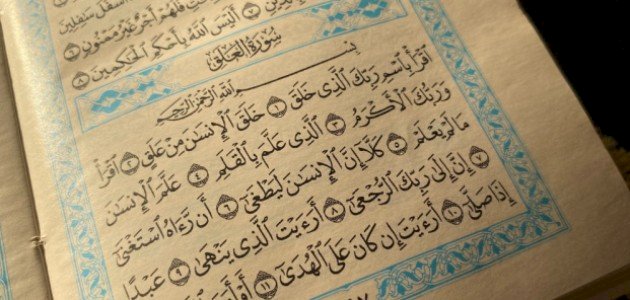 أَسْفَلَ سَٰفِلِينَ
فَلَهُمْ أَجْرٌ غَيْرُ مَمْنُونٍ ٦
أَلَيْسَ ٱللَّهُ بِأَحْكَمِ ٱلْحَٰكِمِينَ ٨
سُورَةُ العَلَقِ
بِسْمِ ٱللَّهِ ٱلرَّحْمَٰنِ ٱلرَّحِيمِ
ٱقْرَأْ بِٱسْمِ رَبِّكَ ٱلَّذِى خَلَقَ ١ خَلَقَ ٱلْإِنسَٰنَ مِنْ عَلَقٍ ٢ ٱقْرَأْ
وَرَبُّكَ ٱلْأَكْرَمُ ٣ ٱلَّذِى عَلَّمَ بِٱلْقَلَمِ ٤ عَلَّمَ ٱلْإِنسَٰنَ
مَا لَمْ يَعْلَمْ ٥ كَلَّآ إِنَّ ٱلْإِنسَٰنَ لَيَطْغَىٰٓ ٦ أَن رَّءَاهُ ٱسْتَغْنَىٰٓ
٧ إِنَّ إِلَىٰ رَبِّكَ ٱلرُّجْعَىٰٓ ٨ أَرَءَيْتَ ٱلَّذِى يَنْهَىٰ ٩ عَبْدًا
إِذَا صَلَّىٰٓ ١٠ أَرَءَيْتَ إِن كَانَ عَلَى ٱلْهُدَىٰٓ ١١